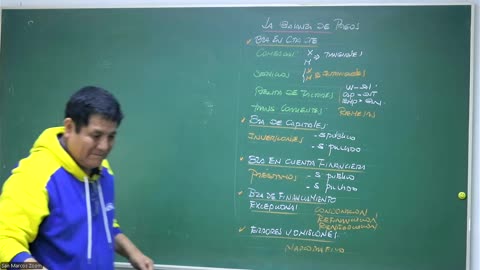 LA BALANZA DE PAGOS
BZA EN CTA CTE
COMERCIAL X M → TANGIBLES
SERVICIOS X M INTANGIBLES
RENTA DE FACTORES W - SAL
TRANS CORRIENTES REMESAS
BZA DE CAPITALES
INVERSIONES - S PUBLICO
- S PRIVADO
BZA EN CUENTA FINANCIERA
PRESTAMOS - S PUBLICO
- S PRIVADO
BZA DE FINANCIAMIENTO
EXCEPCIONAL CONDONACION
REFINANCIACION
ERRORES Y OMISIONES
San Marcos Zoom